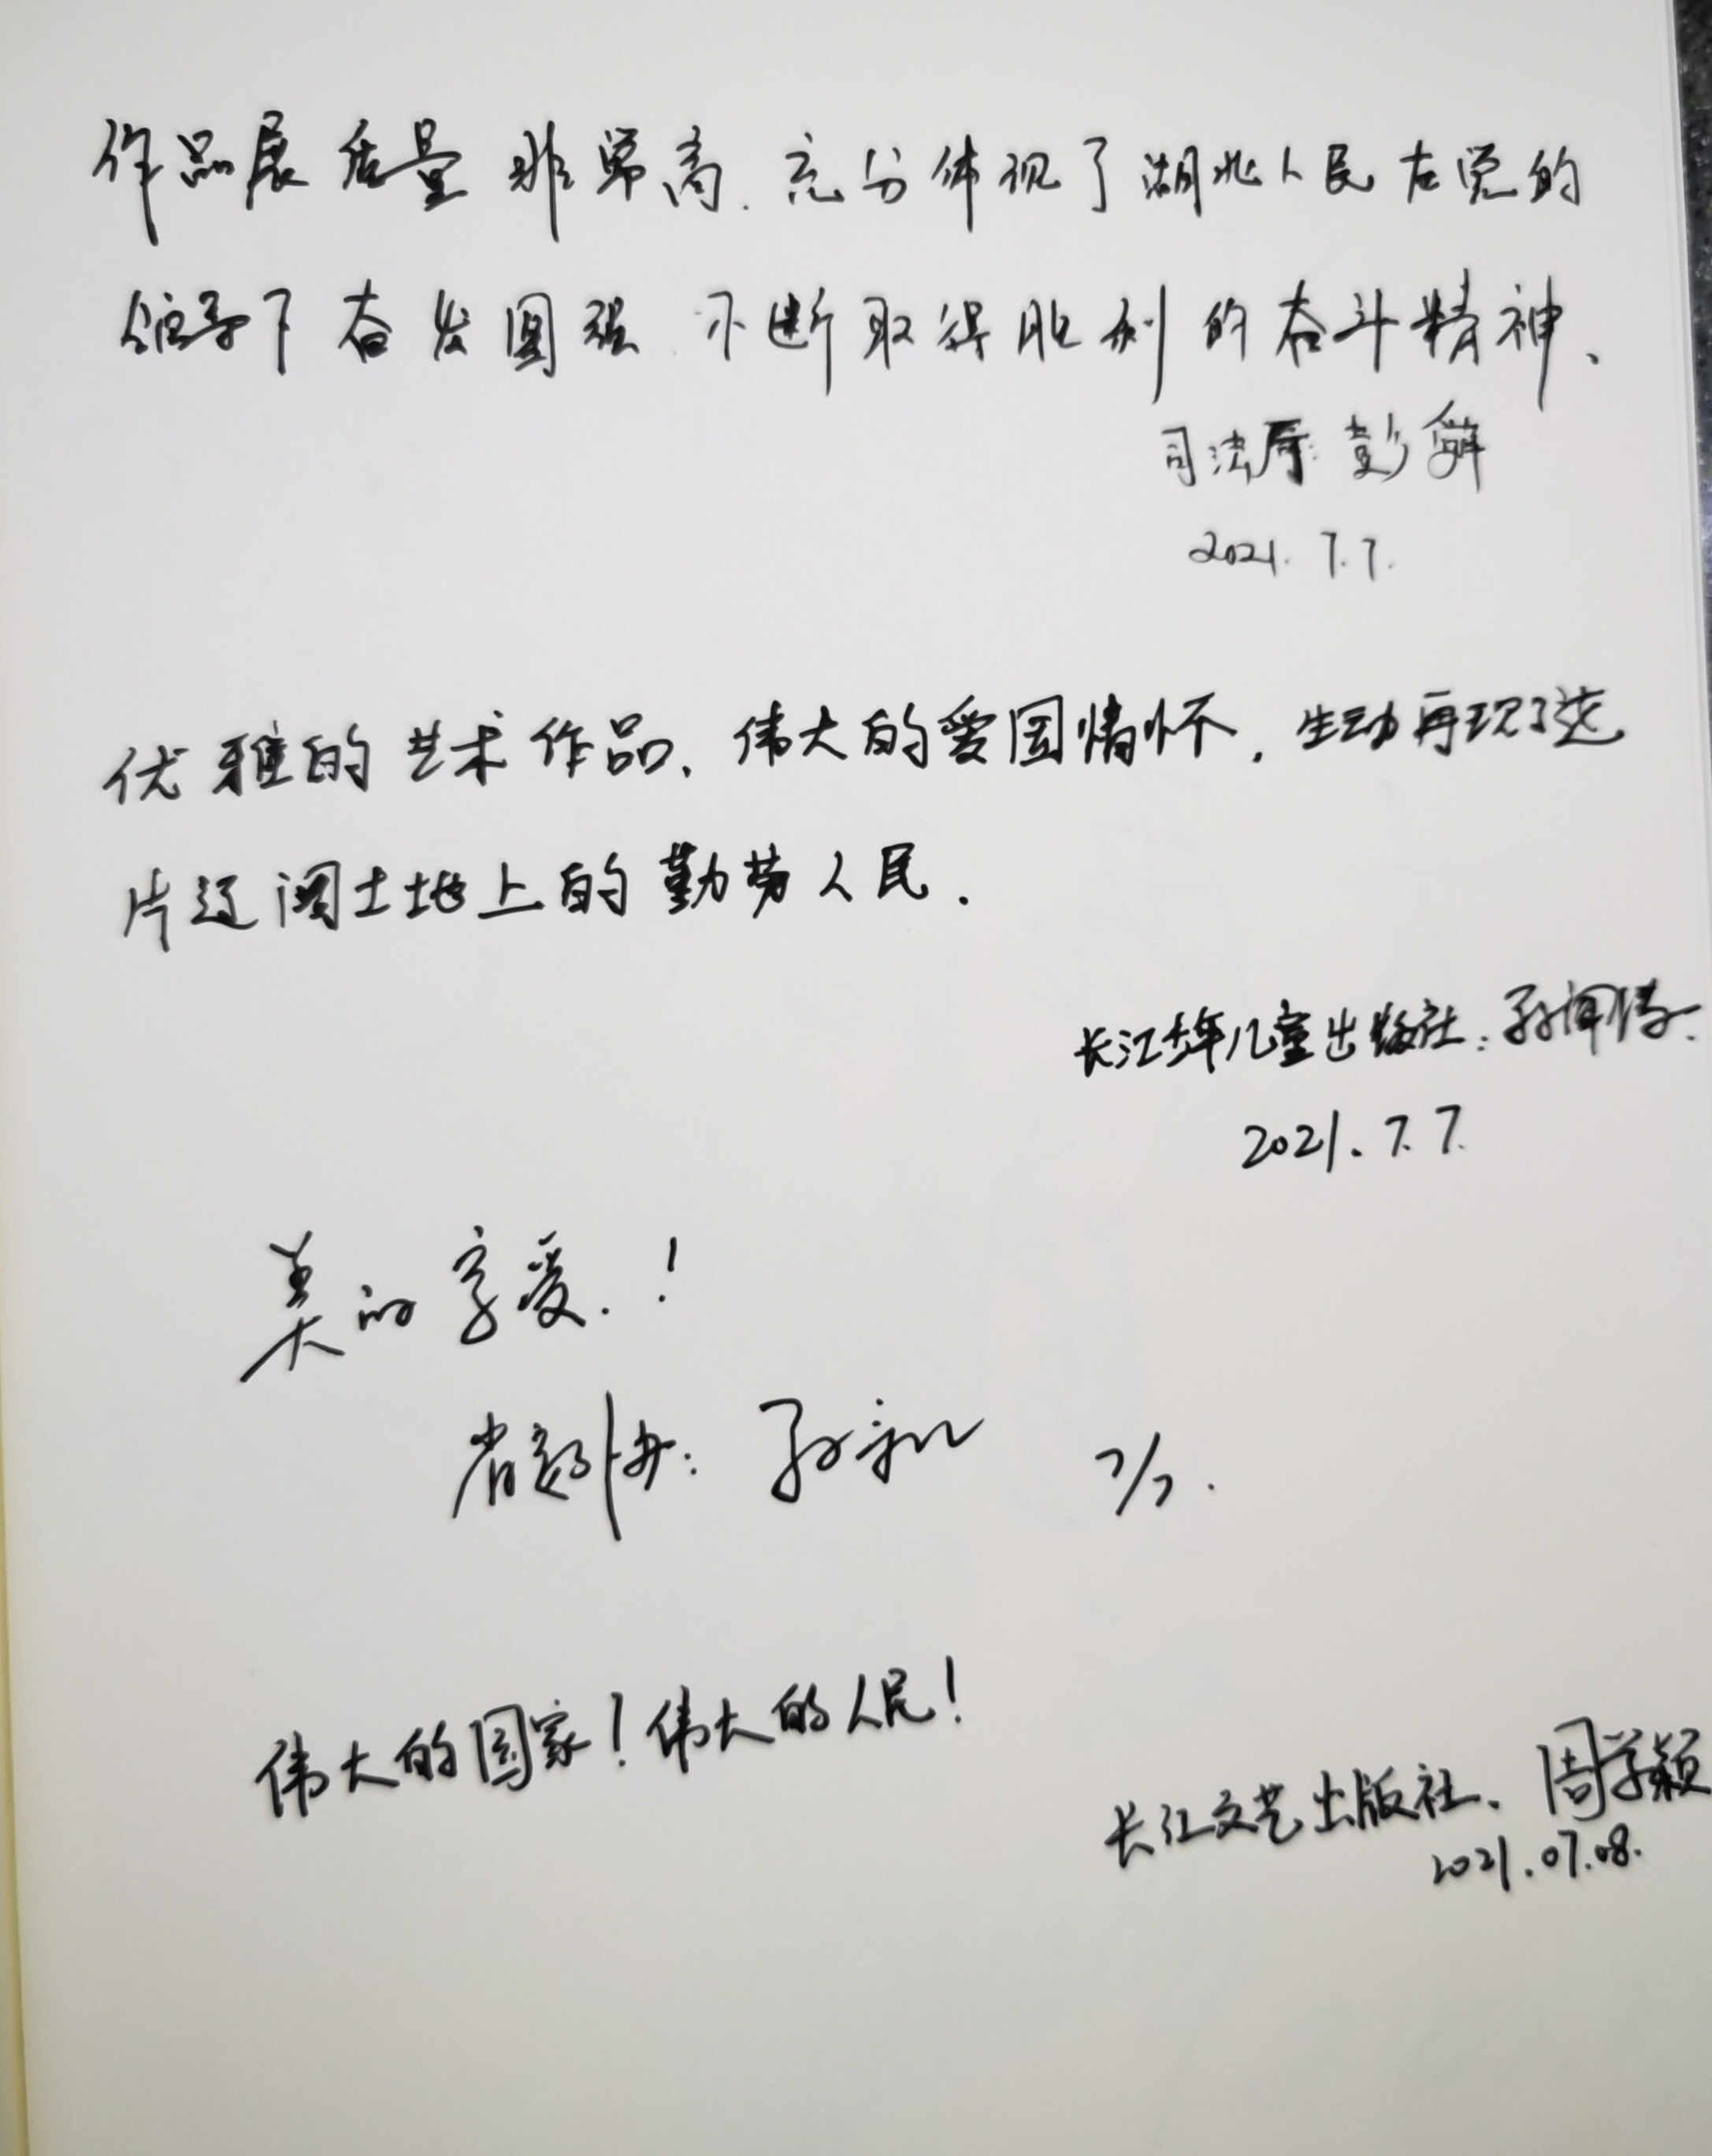 作品展质量非常高.充分体现了湖北人民在党的
领导下奋发图强 不断取得胜利的奋斗精神、
司法厅:彭
2021.7.7.
优雅的艺术作品、伟大的爱国情怀,生动再现了这
片辽阔土地上的勤劳人民.
长江少年儿童出版社:孙闻
2021.7.7.
美的享受.!
省 协: 孙新 7/7.
伟大的国家!伟大的人民!
长江文艺出版社、周学颖
2021.07.08.